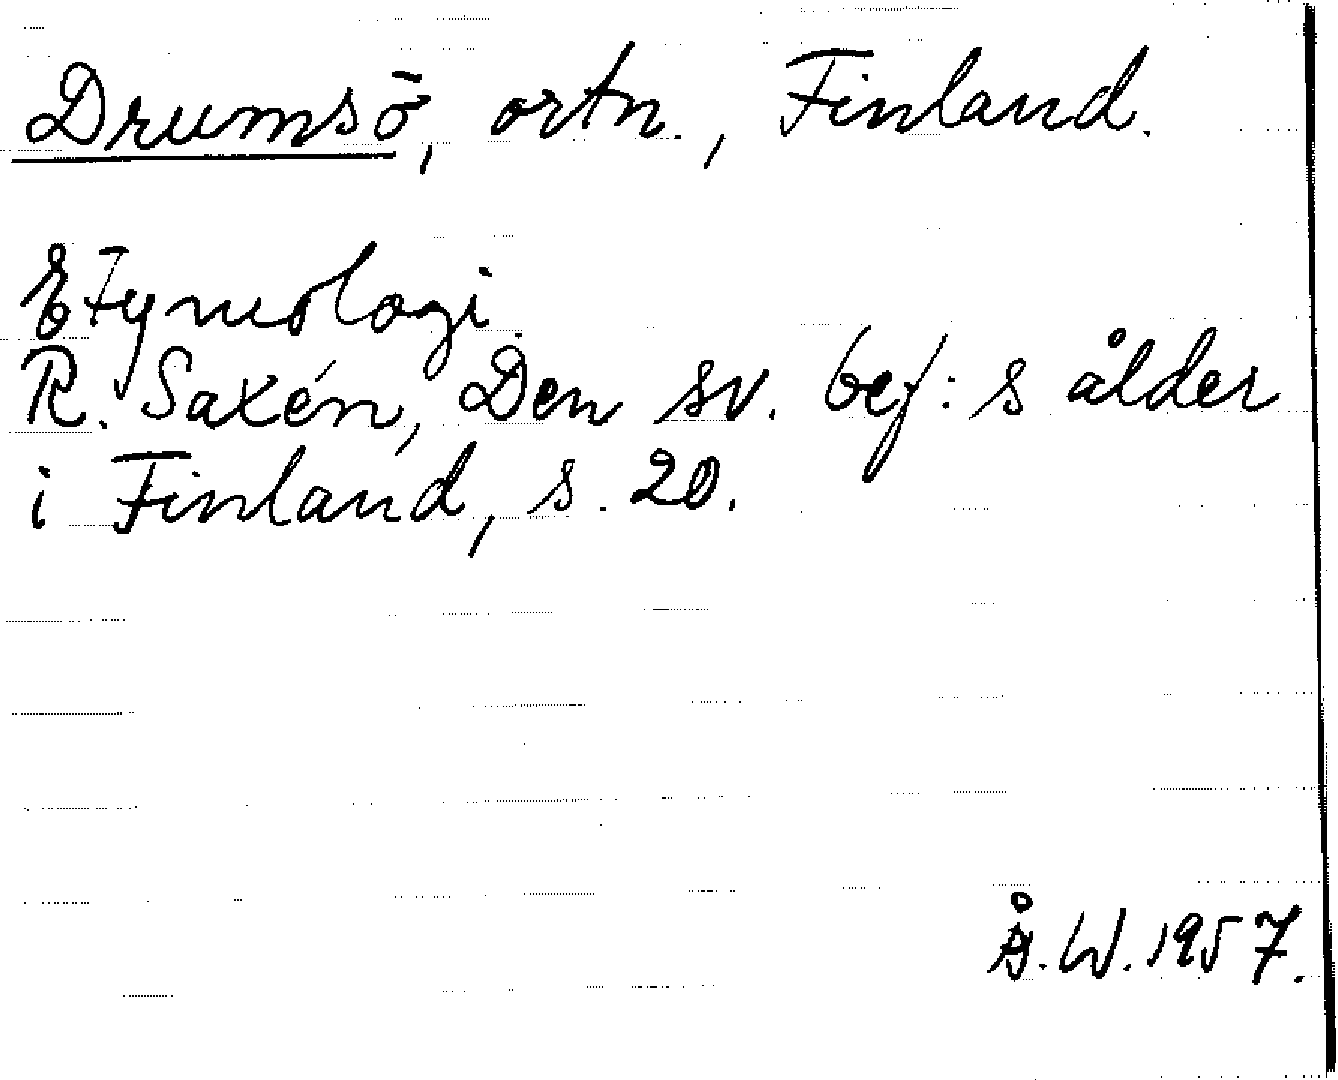 Drumsö, ortn., Finland.
Etymologi.
R. Saxén, Den sv. bef:s ålder
i Finland, s. 20.
Å.W. 1957.